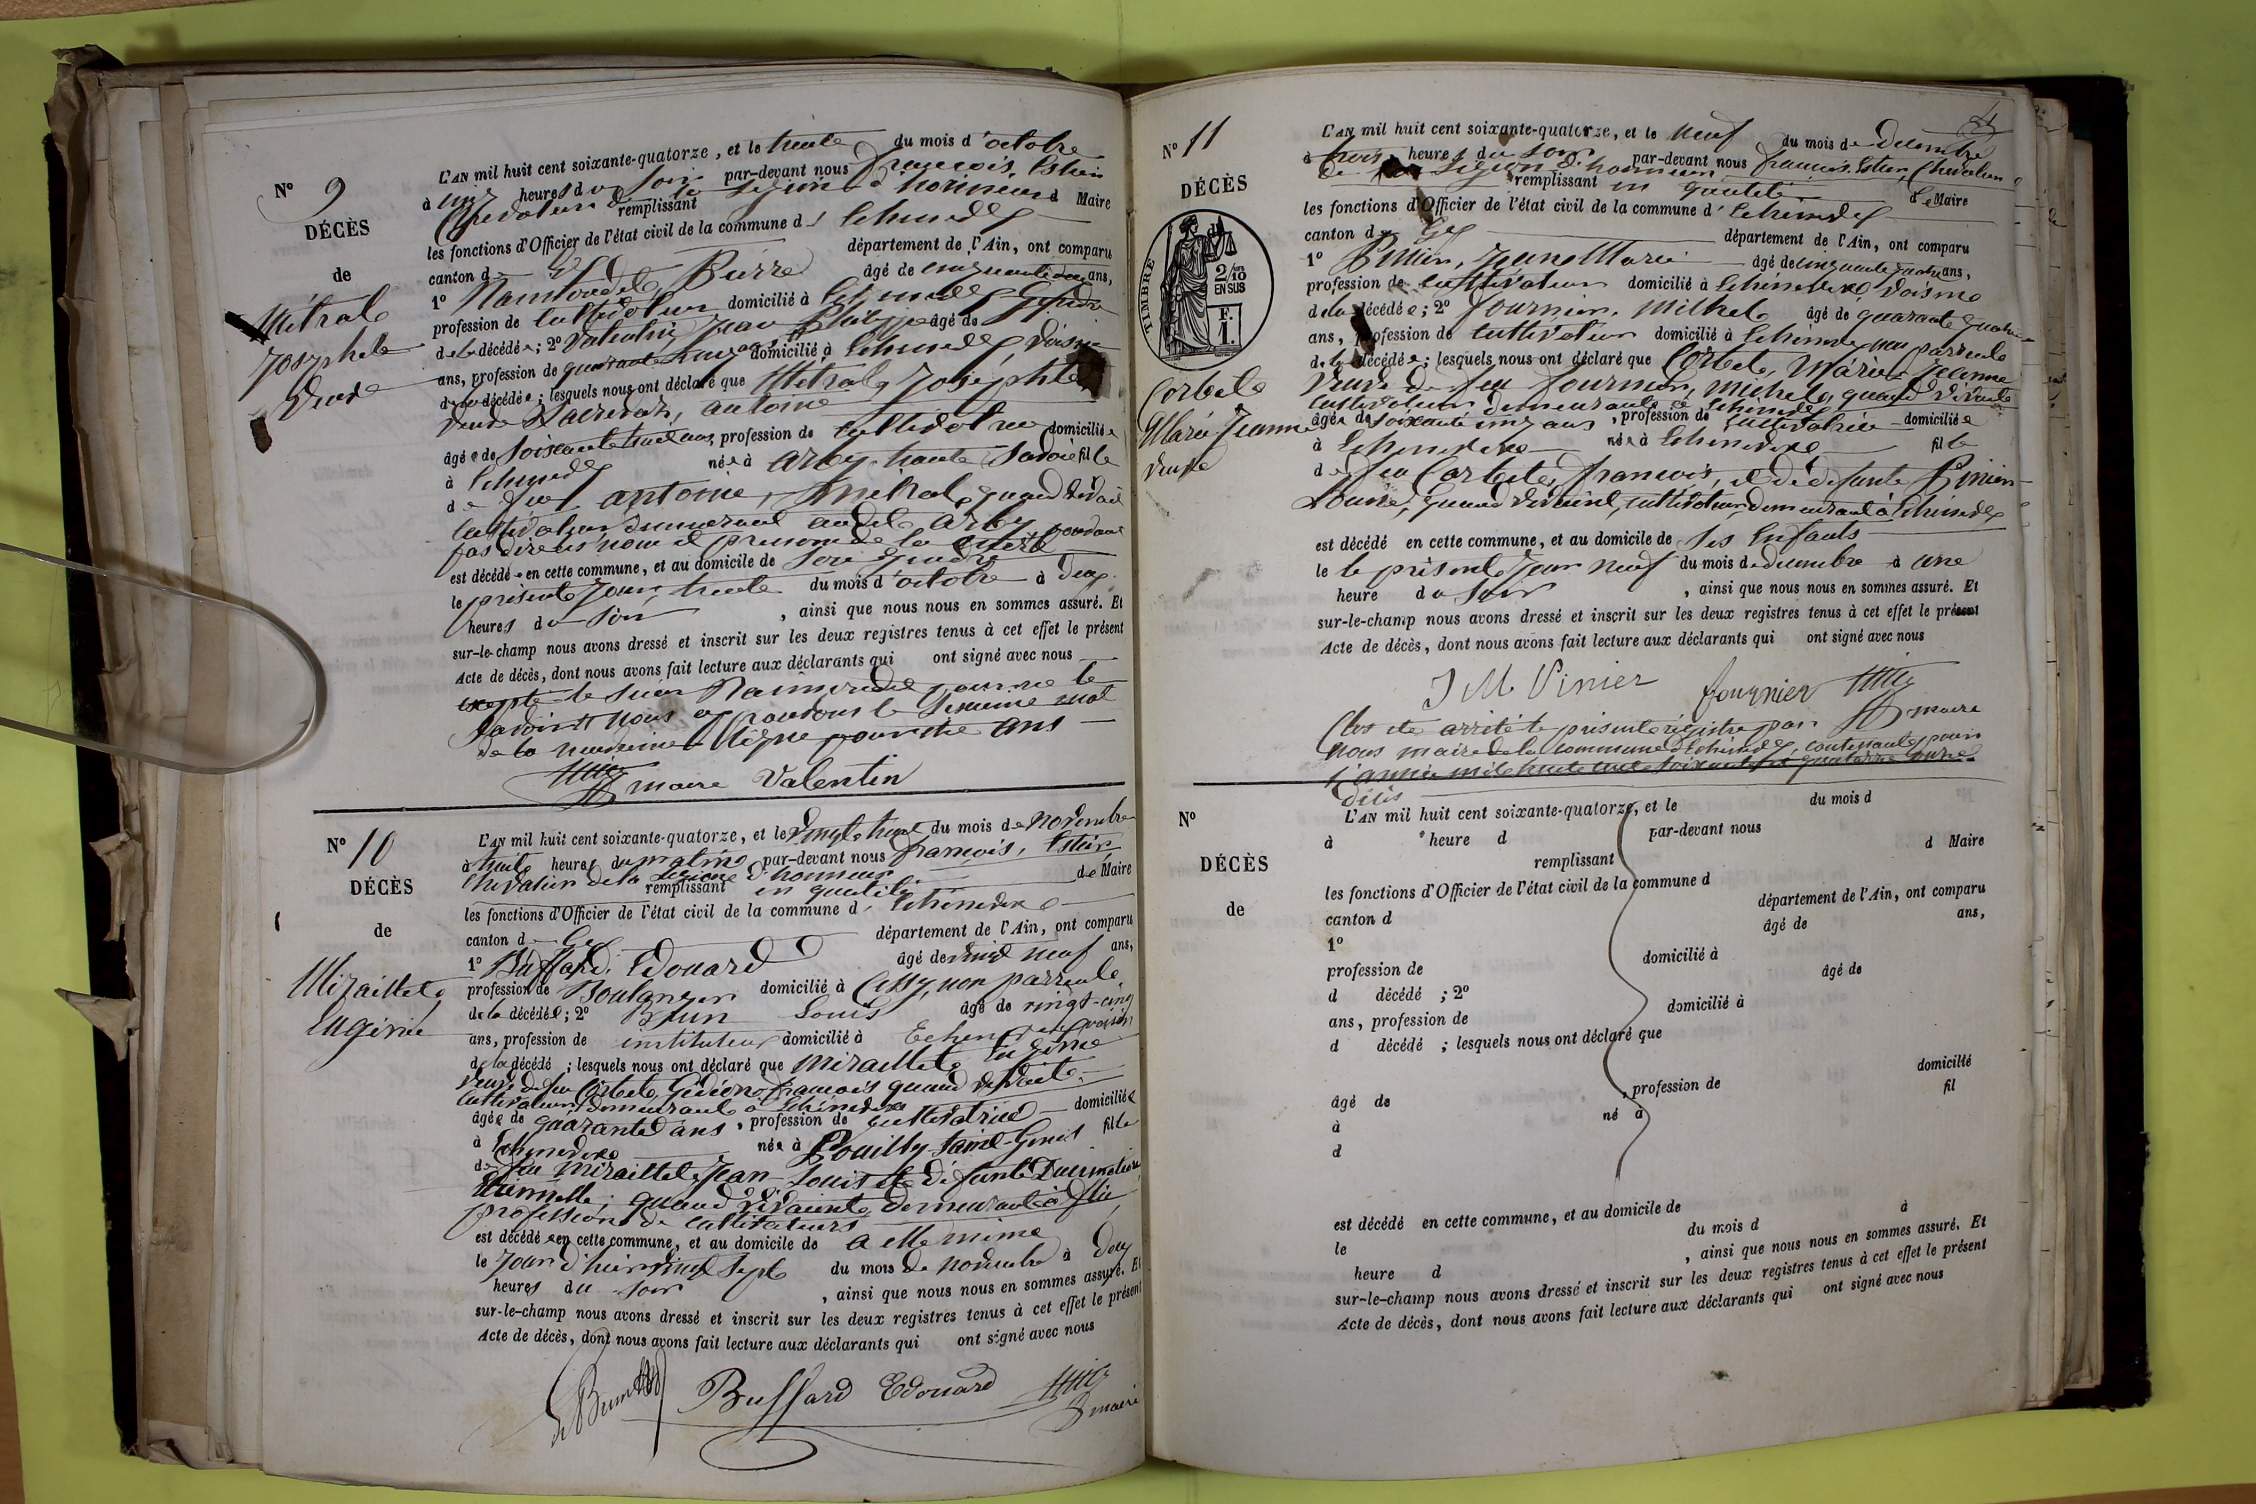 N° 9
DÉCÈS
de
Métral
Josephte
veuve
L'AN mil huit cent soixante-quatorze, et le trente du mois d'octobre
à cinq heures du soir par-devant nous françois, Estier
Chevalier de la Légion d'honneur remplissant d Maire
les fonctions d'Officier de l'état civil de la commune d'Echenevex
canton de Gex département de l'Ain, ont comparu
1° Pierre âgé de cinquante deux ans,
profession de cultivateur domicilié à Echenevex Gendre
de la décédée ; 2° Valentin Jean Philippe âgé de
ans, profession de quarante domicilié à Echenevex, voisin
de la décédée ; lesquels nous ont déclaré que Métral, Josephte
veuve antoine
âgée de Soixante huit ans, profession de cultivatrice domiciliée
à Echenevex née à arby haute Savoie fille
de feu antoine, métral, quand vivait
cultivateur demeurant audit arby, pouvant
pas dire les nom et prenom de la mère
est décédée en cette commune, et au domicile de son gendre
le présent jour trente du mois d'octobre à deux
heures du soir , ainsi que nous nous en sommes assuré. Et
sur-le-champ nous avons dressé et inscrit sur les deux registres tenus à cet effet le présent
Acte de décès, dont nous avons fait lecture aux déclarants qui ont signé avec nous
excepté le sieur pour ne le
savoir nous approuvons le mot
de la neuvieme ligne pour dire ans
maire Valentin
N° 10
DÉCÈS
de
Miraillet
Eugénie
L'AN mil huit cent soixante-quatorze, et le vingt huit du mois de novembre
à huit heures du matin par-devant nous francois, Estier
Chevalier de la Légion d'honneur remplissant en qualité de Maire
les fonctions d'Officier de l'état civil de la commune d'Echenevex
canton de Gex département de l'Ain, ont comparu
1° Buffard, Edouard âgé de vingt neuf ans,
profession de Boulanger domicilié à Cessy, non parrent
de la décédée ; 2° Brun Louis âgé de vingt-cinq
ans, profession de instituteur domicilié à Echenevex voisin
de la décédé ; lesquels nous ont déclaré que Miraillet Eugénie
veuve de feu Corbet, Gédéon françois quand vivait
cultivateur demeurant à Echenevex
âgée de quarante ans, profession de cultivatrice domiciliée
à Echenevex née à Pouilly Saint-Genis fille
de feu Miraillet Jean-Louis et défunte
quand vivaient demeurant à
profession de cultivateurs
est décédée en cette commune, et au domicile de a elle même
le jour d'hier vingt sept du mois de novembre à deux
heures du soir , ainsi que nous nous en sommes assuré. Et
sur-le-champ nous avons dressé et inscrit sur les deux registres tenus à cet effet le présent
Acte de décès, dont nous avons fait lecture aux déclarants qui ont signé avec nous
Brun Buffard Edouard
maire
N° 11
DÉCÈS
TIMBRE
2/10 EN SUS
F. 1.
Corbet
Marie Jeanne
veuve
L'AN mil huit cent soixante-quatorze, et le neuf du mois de Décembre
à trois heures du soir par-devant nous francois, Estier, Chevalier
de la Légion d'honneur remplissant en qualité de Maire
les fonctions d'Officier de l'état civil de la commune d'Echenevex
canton de Gex département de l'Ain, ont comparu
1° Pinier, Jean Marie âgé de cinquante quatre ans,
profession de cultivateur domicilié à Echenevex voisin
de la décédée ; 2° fournier, Michel âgé de quarante quatre
ans, profession de cultivateur domicilié à Echenevex non parrent
de la décédée ; lesquels nous ont déclaré que Corbet, Marie Jeanne
veuve de feu fournier, michel, quand vivait
cultivateur demeurant à Echenevex
âgée de soixante cinq ans, profession de cultivatrice domiciliée
à Echenevex née à Echenevex fille
de feu Corbet, francois, et de défunte Pinier
Louise, quand vivaient, cultivateur demeurant à Echenevex
est décédé en cette commune, et au domicile de ses Enfants
le le présent jour neuf du mois de decembre à une
heure du soir , ainsi que nous nous en sommes assuré. Et
sur-le-champ nous avons dressé et inscrit sur les deux registres tenus à cet effet le présent
Acte de décès, dont nous avons fait lecture aux déclarants qui ont signé avec nous
J M Pinier fournier
maire
Clos et arrêté le présent régistre par
nous maire de la commune d'Echenevex, contenant pour
l'année mil huit cent soixante et quatorze onze
Décès
N°
DÉCÈS
de
L'AN mil huit cent soixante-quatorze, et le du mois d
à heure d par-devant nous
remplissant d Maire
les fonctions d'Officier de l'état civil de la commune d
canton d département de l'Ain, ont comparu
1° âgé de ans,
profession de domicilié à
d décédé ; 2° âgé de
ans, profession de domicilié à
d décédé ; lesquels nous ont déclaré que
âgé de , profession de domicilié
à né à fil
d
est décédé en cette commune, et au domicile de
le du mois d à
heure d , ainsi que nous nous en sommes assuré. Et
sur-le-champ nous avons dressé et inscrit sur les deux registres tenus à cet effet le présent
Acte de décès, dont nous avons fait lecture aux déclarants qui ont signé avec nous